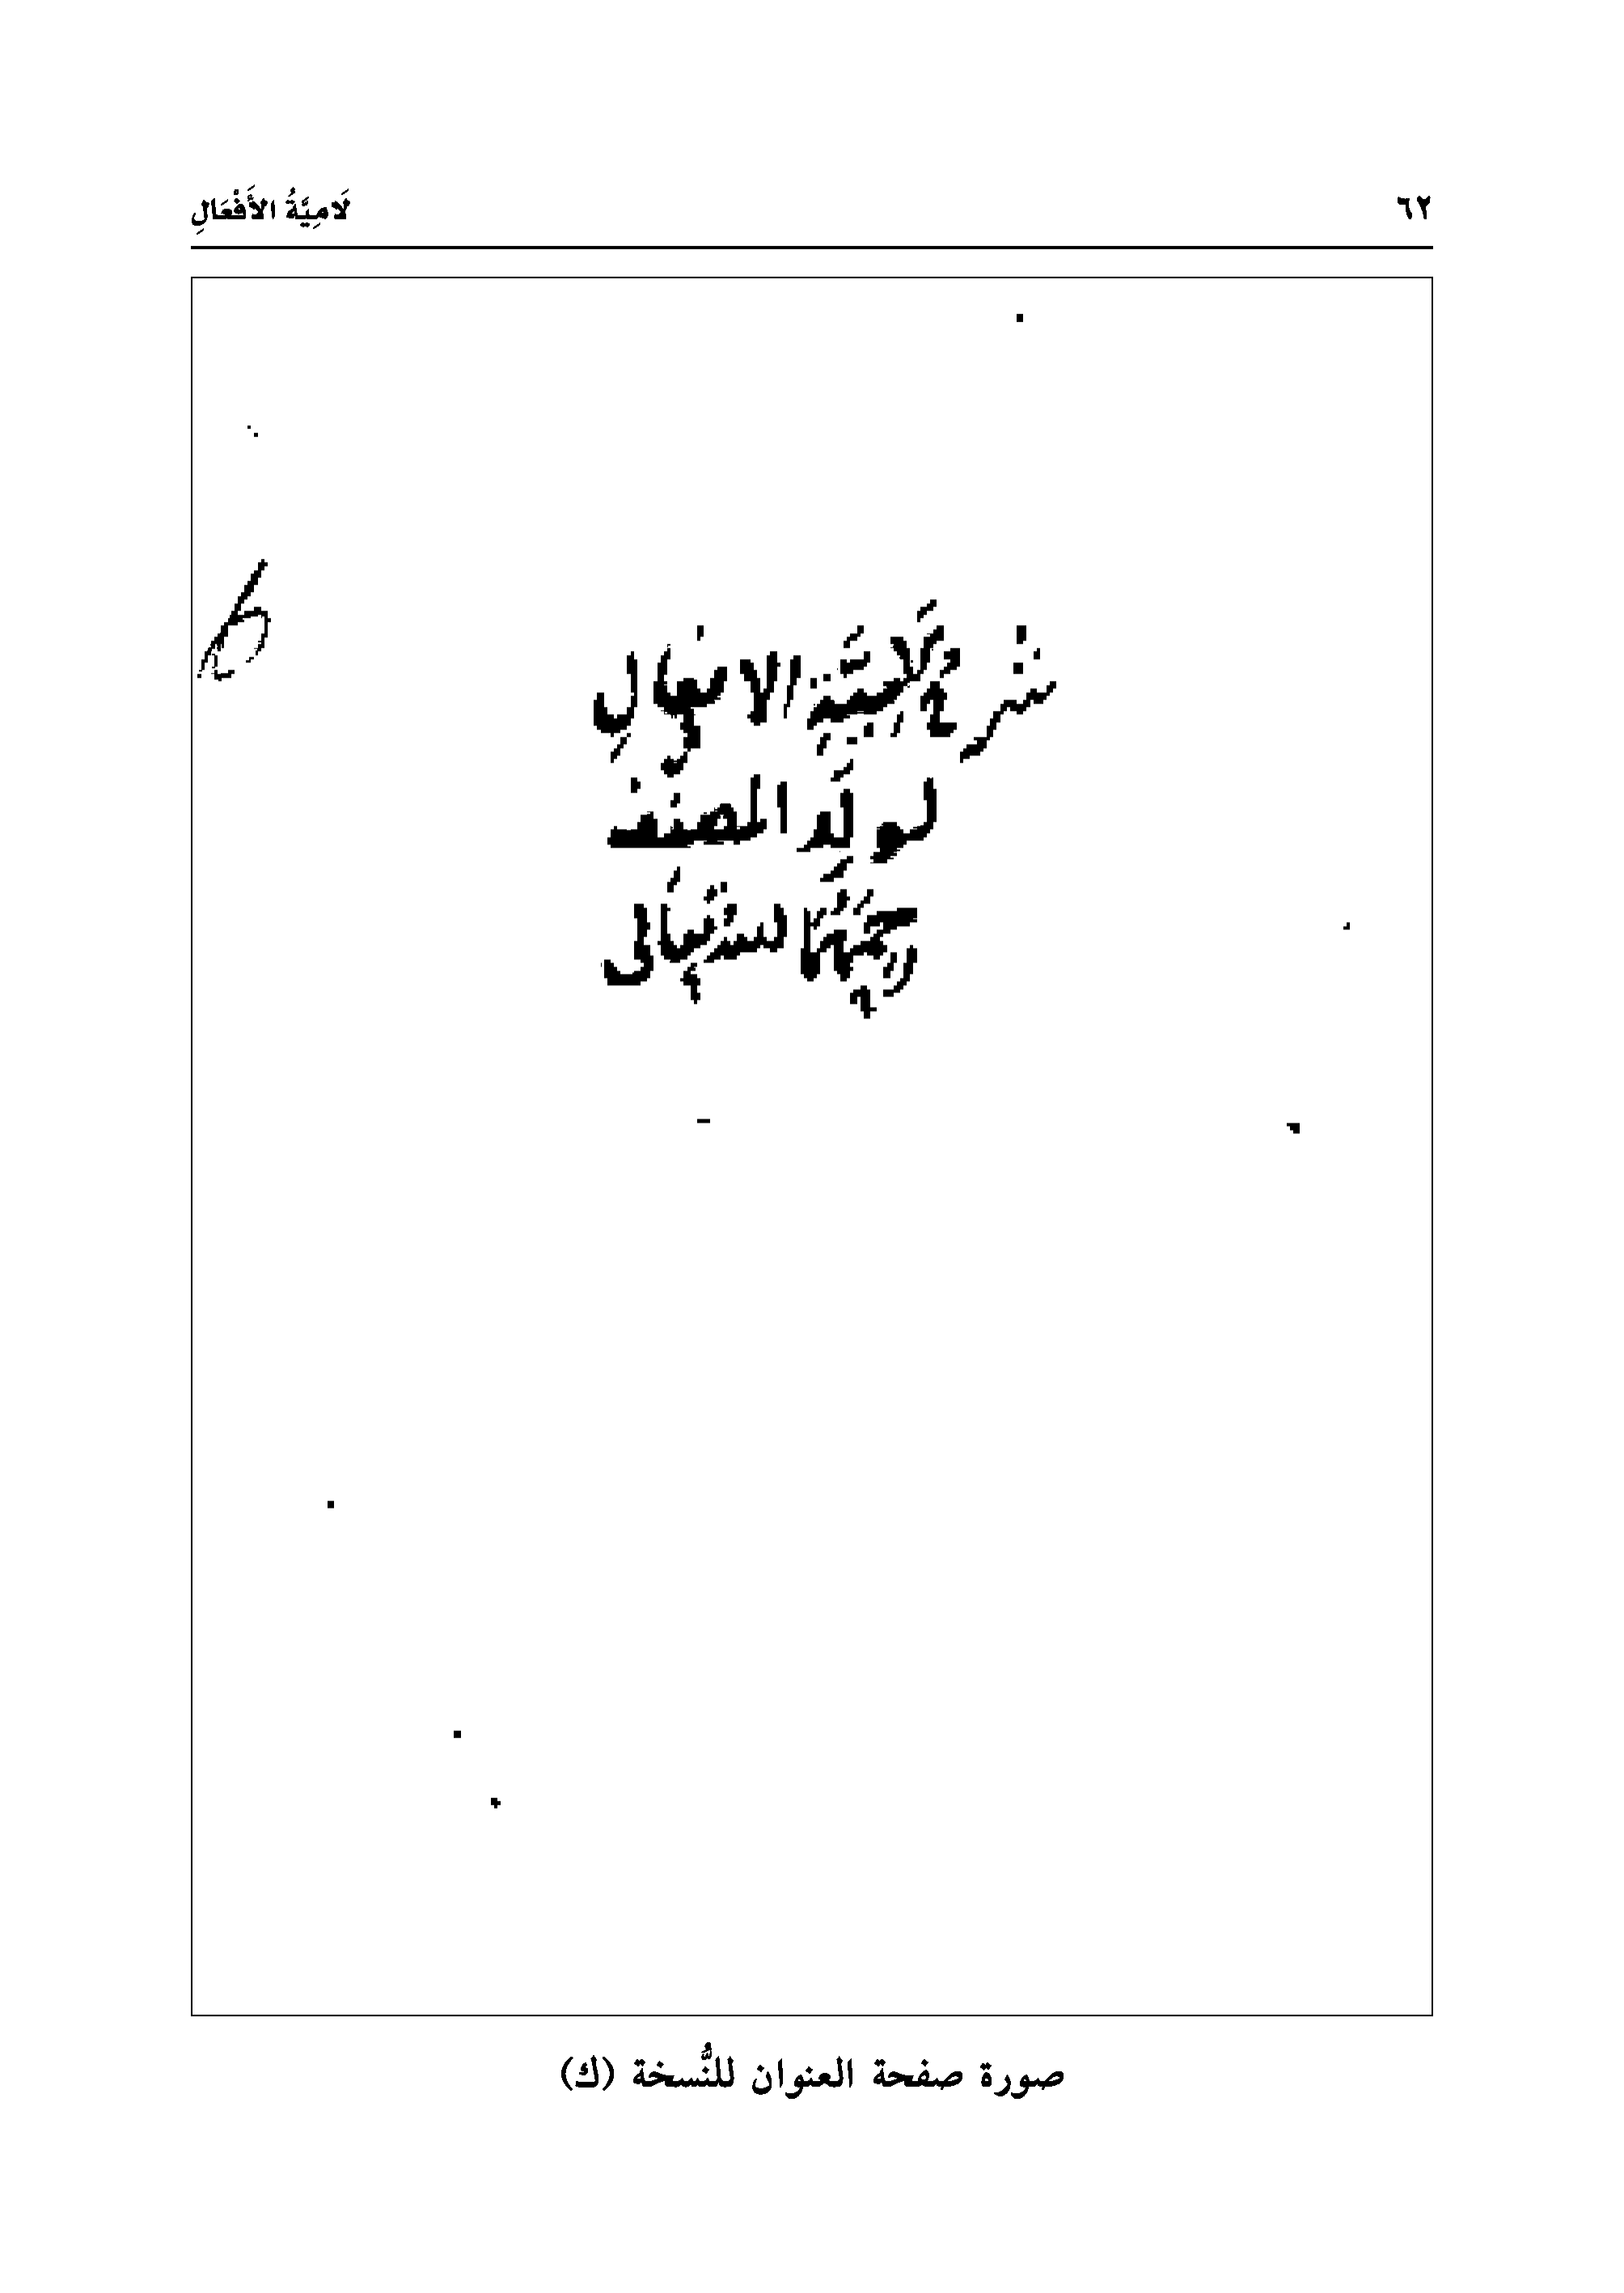 ٦٢
لَامِيَّةُ الأَفْعَالِ
شرح لَامِيَّةِ الافعَالِ
لولَدِ المصنف
رحمَهُمَا الله تعَالى
صورة صفحة العنوان للنُّسخة (ك)